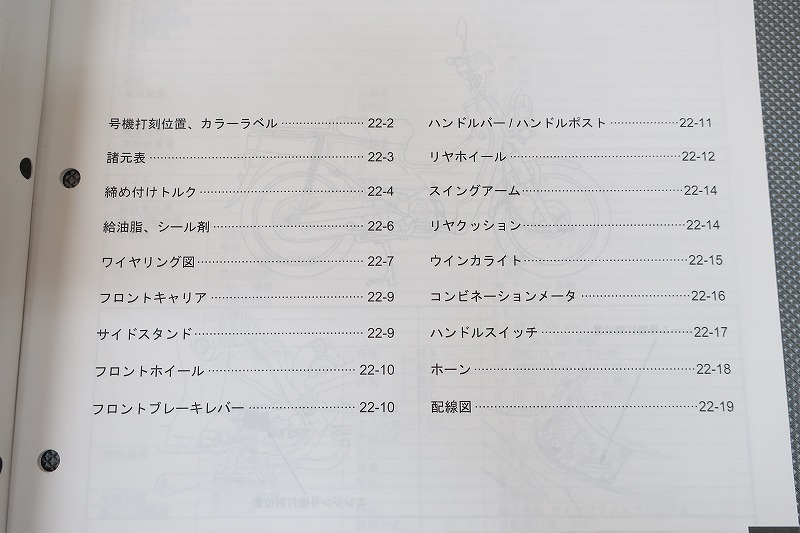 号機打刻位置、カラーラベル ························ 22-2
諸元表 ························ 22-3
締め付けトルク ························ 22-4
給油脂、シール剤 ························ 22-6
ワイヤリング図 ························ 22-7
フロントキャリア ························ 22-9
サイドスタンド ························ 22-9
フロントホイール ························ 22-10
フロントブレーキレバー ························ 22-10
ハンドルバー / ハンドルポスト ························ 22-11
リヤホイール ························ 22-12
スイングアーム ························ 22-14
リヤクッション ························ 22-14
ウインカライト ························ 22-15
コンビネーションメータ ························ 22-16
ハンドルスイッチ ························ 22-17
ホーン ························ 22-18
配線図 ························ 22-19